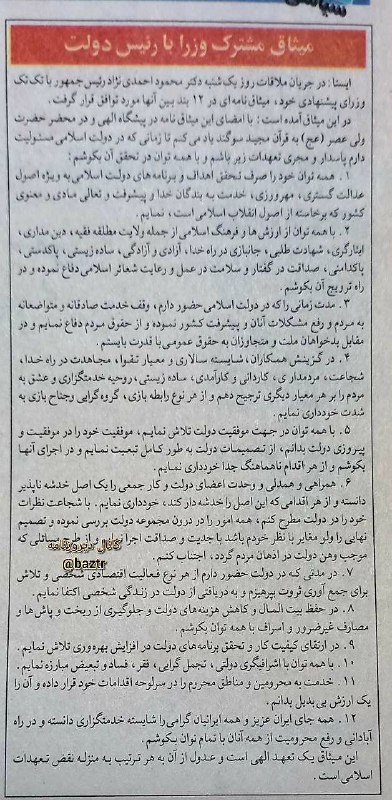 سیاسی
میثاق مشترک وزرا با رئیس دولت
ایسنا : در جریان ملاقات روز یک شنبه دکتر محمود احمدی نژاد رئیس جمهور با تک تک
وزرای پیشنهادی خود، میثاق نامه ای در ۱۲ بند بین آنها مورد توافق قرار گرفت.
در این میثاق آمده است : با امضای این میثاق نامه در پیشگاه الهی و در محضر حضرت
ولی عصر (عج) به قرآن مجید سوگند یاد می کنم تا زمانی که در دولت اسلامی مسئولیت
دارم پاسدار و مجری تعهدات زیر باشم و با همه توان در تحقق آن بکوشم :
۱ . همه توان خود را صرف تحقق اهداف و برنامه های دولت اسلامی به ویژه اصول
عدالت گستری، مهرورزی، خدمت به بندگان خدا و پیشرفت و تعالی مادی و معنوی
کشور که برخاسته از اصول انقلاب اسلامی است ، نمایم .
۲ . با همه توان از ارزش ها و فرهنگ اسلامی از جمله ولایت مطلقه فقیه ، دین مداری،
ایثارگری، شهادت طلبی، جانبازی در راه خدا، آزادی و آزادگی، ساده زیستی، پاکدستی،
پاکدامنی، صداقت در گفتار و سلامت در عمل و رعایت شعائر اسلامی دفاع نموده و در
راه ترویج آن بکوشم .
۳ . مدت زمانی را که در دولت اسلامی حضور دارم ، وقف خدمت صادقانه و متواضعانه
به مردم و رفع مشکلات آنان و پیشرفت کشور نموده و از حقوق مردم دفاع نمایم و در
مقابل بدخواهان ملت و متجاوزان به حقوق عمومی با قدرت بایستم .
۴ . در گزینش همکاران، شایسته سالاری و معیار تقوا، مجاهدت در راه خدا،
شجاعت، مردمداری، کاردانی و کارآمدی، ساده زیستی، روحیه خدمتگزاری و عشق به
مردم را بر هر معیار دیگری ترجیح دهم و از هر نوع رابطه بازی، گروه گرایی وجناح بازی به
شدت خودداری نمایم .
۵ . با همه توان در جهت موفقیت دولت تلاش نمایم، موفقیت خود را در موفقیت و
پیروزی دولت بدانم ، از تصمیمات دولت به طور کامل تبعیت نمایم و در اجرای آنها
بکوشم و از هر اقدام ناهماهنگ جدا خودداری نمایم .
۶ . همراهی و همدلی و وحدت اعضای دولت و کار جمعی را یک اصل خدشه ناپذیر
دانسته و از هر اقدامی که این اصل را خدشه دار کند، خودداری نمایم . با شجاعت نظرات
خود را در دولت مطرح کنم ، همه امور را در درون مجموعه دولت بررسی نموده و تصمیم
نهایی را ولو مغایر با نظر خودم باشد با جدیت و صداقت اجرا و از طرح مسائلی که
موجب وهن دولت در اذهان مردم گردد، اجتناب کنم .
کانال دیروزنامه
@baztr
۷ . در مدتی که در دولت حضور دارم از هر نوع فعالیت اقتصادی شخصی و تلاش
برای جمع آوری ثروت بپرهیزم و به دریافتی از دولت در زندگی شخصی اکتفا نمایم .
۸ . در حفظ بیت المال و کاهش هزینه های دولت و جلوگیری از ریخت و پاش ها و
مصارف غیرضرور و اسراف با همه توان بکوشم .
۹ . در ارتقای کیفیت کار و تحقق برنامه های دولت در افزایش بهره وری تلاش نمایم .
۱۰ . با همه توان با اشرافیگری دولتی، تجمل گرایی، فقر، فساد و تبعیض مبارزه نمایم .
۱۱ . خدمت به محرومین و مناطق محروم را در سرلوحه اقدامات خود قرار داده و آن را
یک ارزش بی بدیل بدانم .
۱۲ . همه جای ایران عزیز و همه ایرانیان گرامی را شایسته خدمتگزاری دانسته و در راه
آبادانی و رفع محرومیت از همه آنان با تمام توان بکوشم .
این میثاق یک تعهد الهی است و عدول از آن به هر ترتیب به منزله نقض تعهدات
اسلامی است .